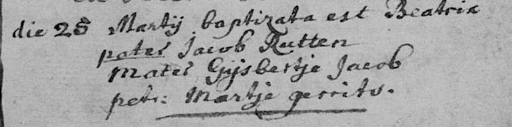 die 25 Martij baptizata est Beatrix
pater Jacob Rutten
Mater Gijsbertje Jacob
petr: Martje gerrits.